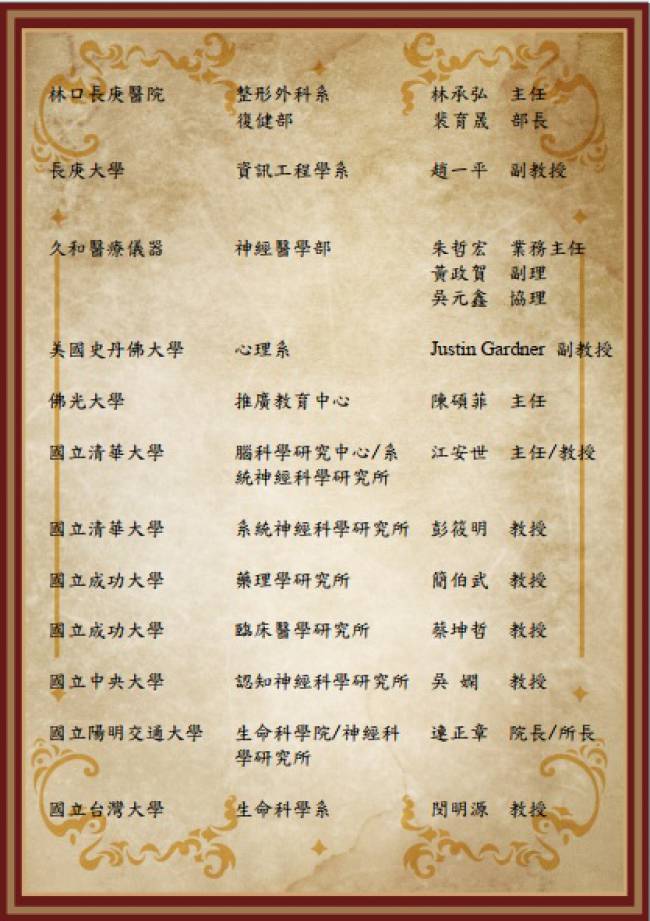 林口長庚醫院 整形外科系 林承弘 主任
復健部 裴育晟 部長
長庚大學 資訊工程學系 趙一平 副教授
久和醫療儀器 神經醫學部 朱哲宏 業務主任
黃政賀 副理
吳元鑫 協理
美國史丹佛大學 心理系 Justin Gardner 副教授
佛光大學 推廣教育中心 陳碩菲 主任
國立清華大學 腦科學研究中心/系 江安世 主任/教授
統神經科學研究所
國立清華大學 系統神經科學研究所 彭筱明 教授
國立成功大學 藥理學研究所 簡伯武 教授
國立成功大學 臨床醫學研究所 蔡坤哲 教授
國立中央大學 認知神經科學研究所 吳 嫻 教授
國立陽明交通大學 生命科學院/神經科 連正章 院長/所長
學研究所
國立台灣大學 生命科學系 閔明源 教授